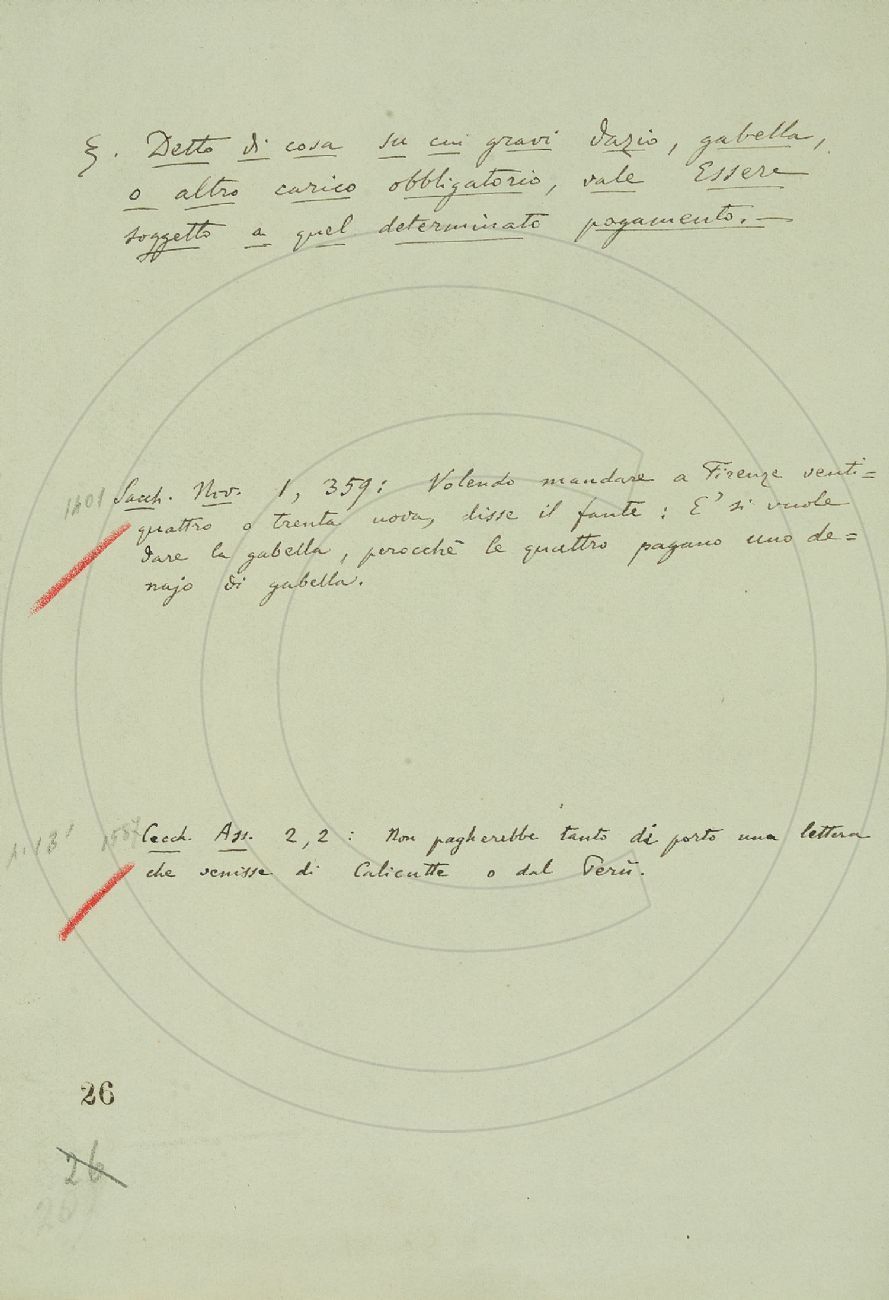 §. Detto di cosa su cui gravi dazio, gabella,
o altro carico obbligatorio, vale Essere
soggetto a quel determinato pagamento. —
Sacch. Nov. 1, 359: Volendo mandare a Firenze venti=
quattro o trenta uova, disse il fante: E' si vuole
dare la gabella, perocchè le quattro pagano uno de=
najo di gabella.
1587 Cecch. Ass. 2, 2: Non pagherebbe tanto di porto una lettera
che venisse di Calicutte o dal Perù.
26
26
26